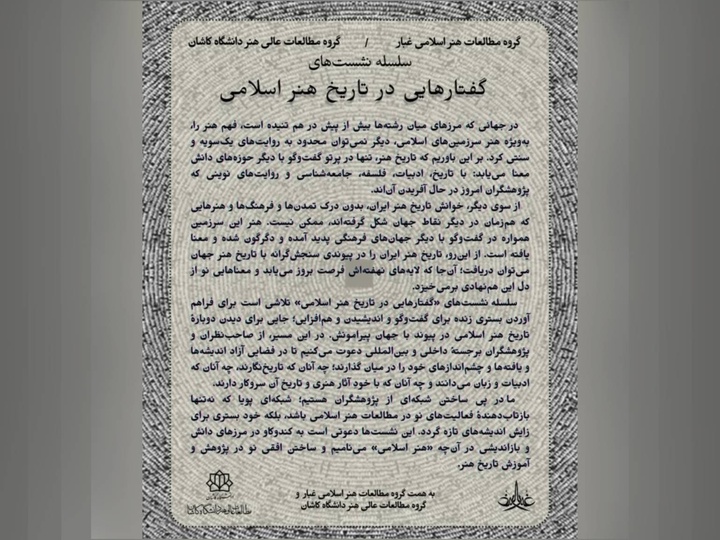 گروه مطالعات هنر اسلامی غبار / گروه مطالعات عالی هنر دانشگاه کاشان
سلسله نشست‌های
گفتارهایی در تاریخ هنر اسلامی
در جهانی که مرزهای میان رشته‌ها بیش از پیش در هم تنیده است، فهم هنر را،
به‌ویژه هنر سرزمین‌های اسلامی، دیگر نمی‌توان محدود به روایت‌های یک‌سویه و
سنتی کرد. بر این باوریم که تاریخ هنر، تنها در پرتو گفت‌وگو با دیگر حوزه‌های دانش
معنا می‌یابد: با تاریخ، ادبیات، فلسفه، جامعه‌شناسی و روایت‌های نوینی که
پژوهشگران امروز در حال آفریدن آن‌اند.
از سوی دیگر، خوانش تاریخ هنر ایران، بدون درک تمدن‌ها و فرهنگ‌ها و هنرهایی
که هم‌زمان در دیگر نقاط جهان شکل گرفته‌اند، ممکن نیست. هنر این سرزمین
همواره در گفت‌وگو با دیگر جهان‌های فرهنگی پدید آمده و دگرگون شده و معنا
یافته است. از این‌رو، تاریخ هنر ایران را در پیوندی سنجش‌گرانه با تاریخ هنر جهان
می‌توان دریافت؛ آن‌جا که لایه‌های نهفته‌اش فرصت بروز می‌یابد و معناهایی نو از
دل این هم‌نهادی برمی‌خیزد.
سلسله نشست‌های «گفتارهایی در تاریخ هنر اسلامی» تلاشی است برای فراهم
آوردن بستری زنده برای گفت‌وگو و اندیشیدن و هم‌افزایی؛ جایی برای دیدن دوبارهٔ
تاریخ هنر اسلامی در پیوند با جهان پیرامونش. در این مسیر، از صاحب‌نظران و
پژوهشگران برجستهٔ داخلی و بین‌المللی دعوت می‌کنیم تا در فضایی آزاد اندیشه‌ها
و یافته‌ها و چشم‌اندازهای خود را در میان گذارند؛ چه آنان که تاریخ‌نگارند، چه آنان که
ادبیات و زبان می‌دانند و چه آنان که با خودِ آثار هنری و تاریخ آن سروکار دارند.
ما در پی ساختن شبکه‌ای از پژوهشگران هستیم؛ شبکه‌ای پویا که نه‌تنها
بازتاب‌دهندهٔ فعالیت‌های نو در مطالعات هنر اسلامی باشد، بلکه خود بستری برای
زایش اندیشه‌های تازه گردد. این نشست‌ها دعوتی است به کندوکاو در مرزهای دانش
و بازاندیشی در آن‌چه «هنر اسلامی» می‌نامیم و ساختن افقی نو در پژوهش و
آموزش تاریخ هنر.
به همت گروه مطالعات هنر اسلامی غبار و
گروه مطالعات عالی هنر دانشگاه کاشان